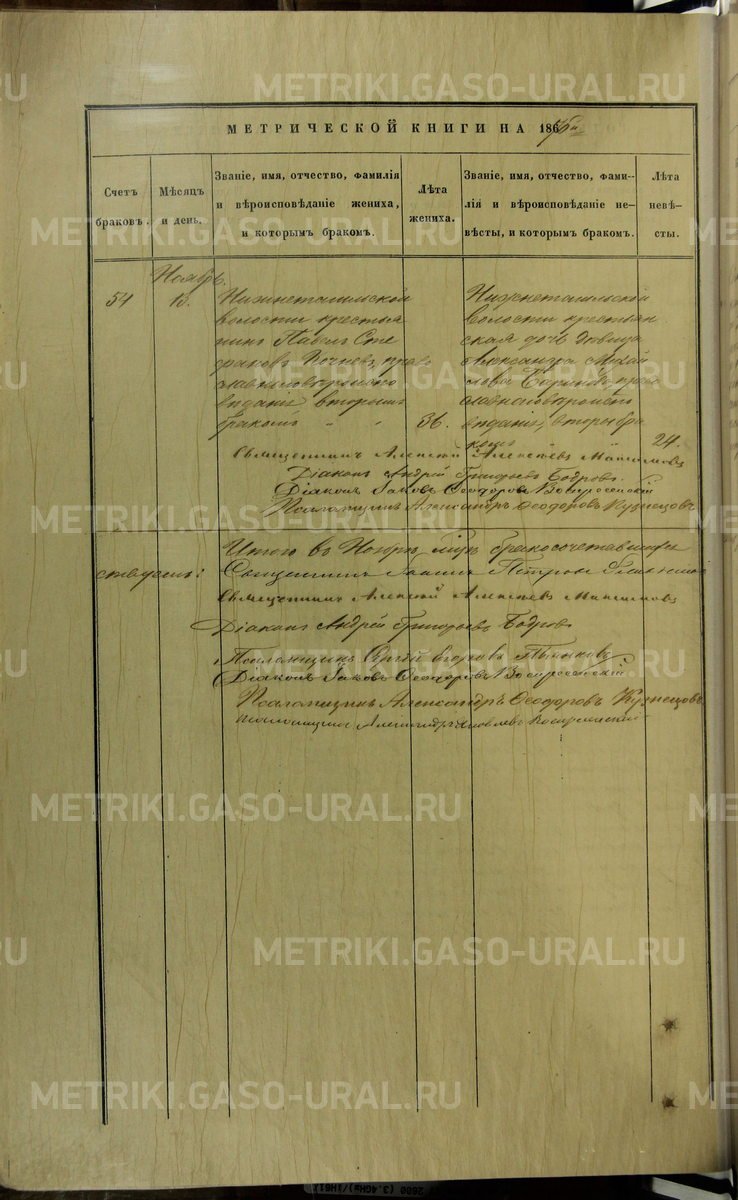 МЕТРИЧЕСКОЙ КНИГИ НА 186
Счетъ браковъ.
Мѣсяцъ и день.
Званіе, имя, отчество, фамилія
и вѣроисповѣданіе жениха,
и которымъ бракомъ.
Лѣта жениха.
Званіе, имя, отчество, фами-
лія и вѣроисповѣданіе не-
вѣсты, и которымъ бракомъ.
Лѣта невѣ-
сты.
Ноябрь
54
13.
Нижнетагильской
волости крестья
нинъ Павелъ Сте
фановъ
вторымъ
бракомъ
36.
Нижнетагильской
волости крестьян
ская дочь девица
Александра Михай
лова
24.
Священникъ Алексѣй Алексѣевъ Максимовъ
Діаконъ Андрей Григорьевъ Бодровъ.
Діаконъ Іаковъ Ѳеодоровъ Воскресенскій
Псаломщикъ Александръ Ѳеодоровъ Кузнецовъ
Итого въ Ноябрѣ бракосочетавшихся
Священникъ Іоаннъ Петровъ
Священникъ Алексѣй Алексѣевъ Максимовъ
Діаконъ Андрей Григорьевъ Бодровъ
Псаломщикъ Сергѣй Егоровъ
Діаконъ Іаковъ Ѳеодоровъ Воскресенскій
Псаломщикъ Александръ Ѳеодоровъ Кузнецовъ.
Псаломщикъ Александръ Яковлевъ Воскресенскій
METRIKI.GASO-URAL.RU